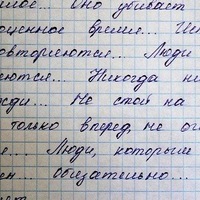 ...лое... Оно убивает
оценное время... Ис
овторяются... Люди
еются... Никогда ни
ди... Не стой на
только вперед, не ог
е... Люди, которым
ен... обязательно...